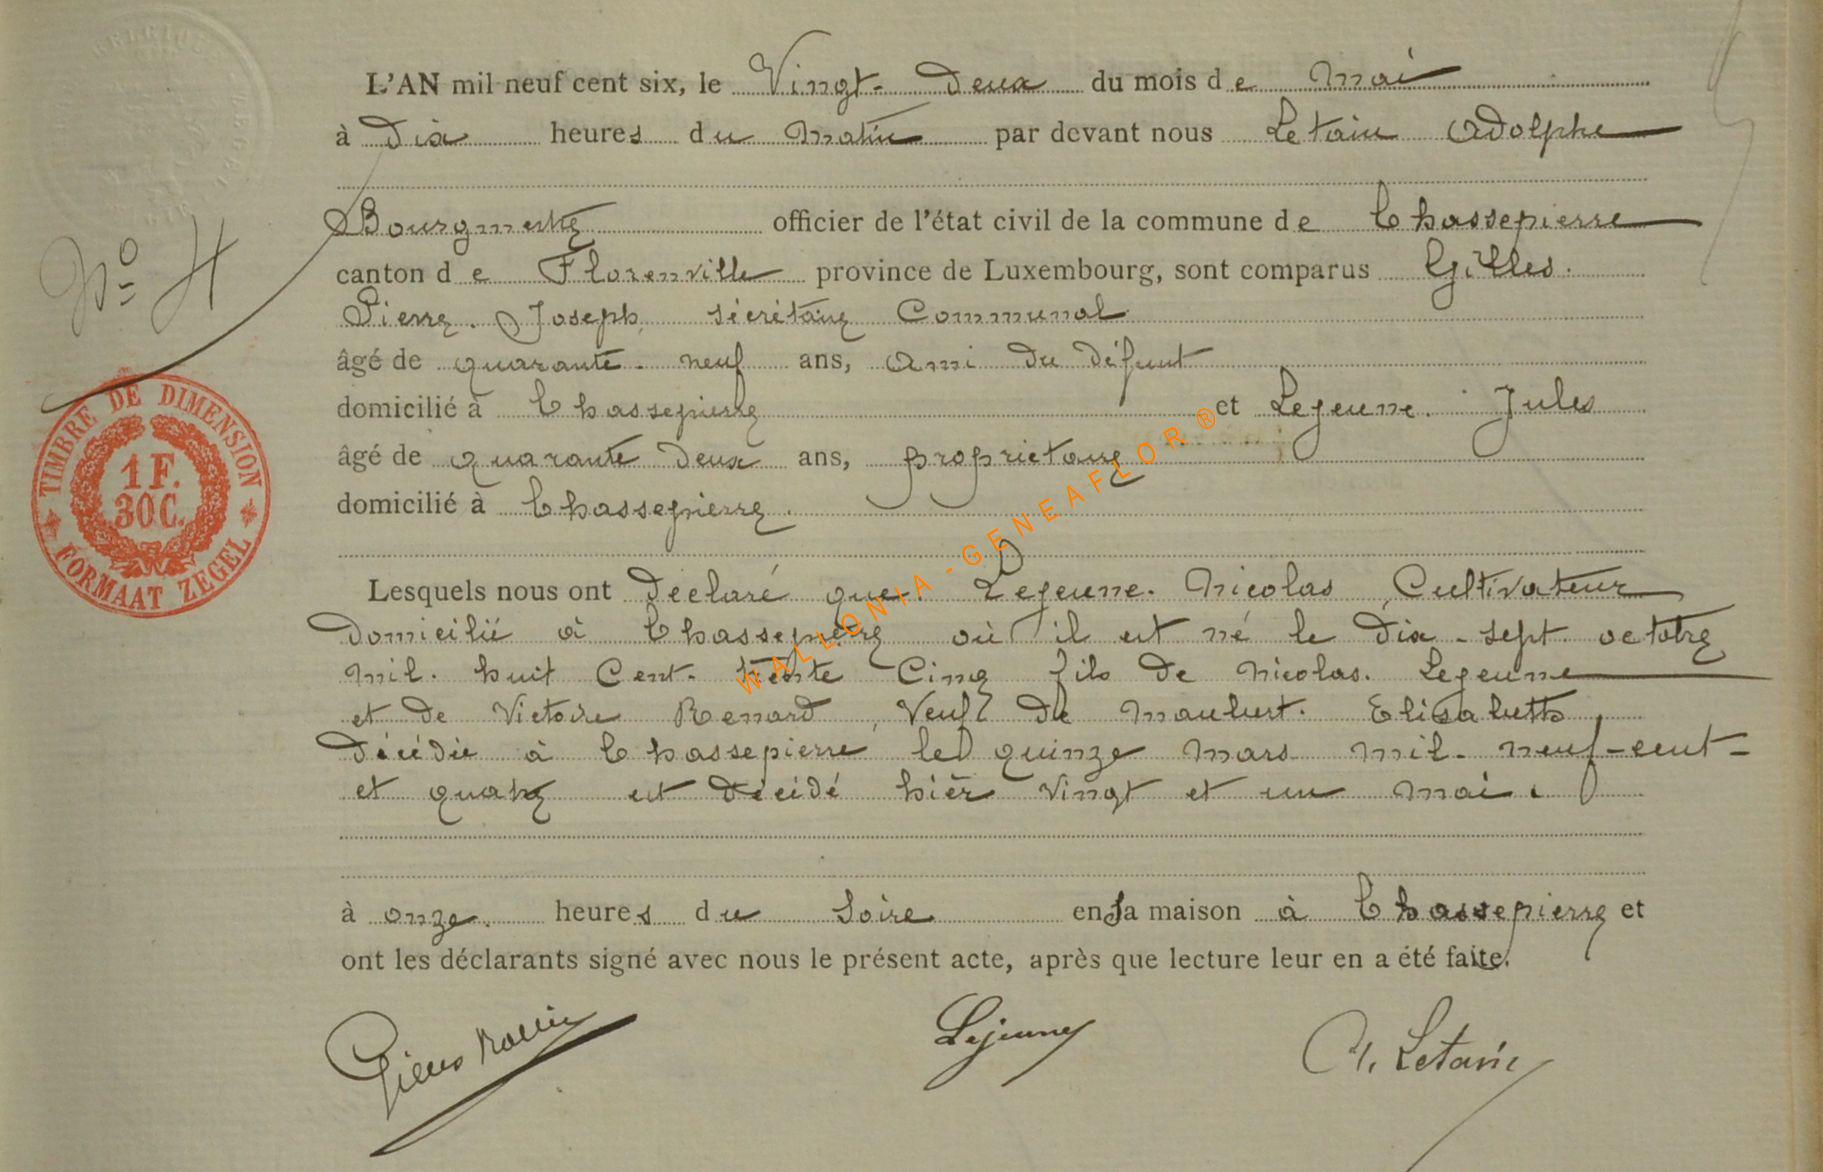 L'AN mil neuf cent six, le Vingt-deux du mois de Mai
à Dix heures du Matin par devant nous Letain Adolphe
Bourgmestre officier de l'état civil de la commune de Chassepierre
canton de Florenville province de Luxembourg, sont comparus Gilles.
Pierre. Joseph, sécrétaire Communal
âgé de quarante-neuf ans, ami du défunt
domicilié à Chassepierre et Lejeune. Jules
âgé de quarante deux ans, propriétaire
domicilié à Chassepierre.
Lesquels nous ont déclaré que. Lejeune. Nicolas, Cultivateur
domicilié à Chassepierre où il est né le dix-sept octobre
mil. huit Cent. trente Cinq fils de Nicolas. Lejeune
et de Victoire Renard, Veuf de Maubert. Elisabeth
décédée à Chassepierre le quinze Mars mil-neuf-cent-
et quatre est décédé hièr vingt et un mai.
à onze. heures du soire en sa maison à Chassepierre et
ont les déclarants signé avec nous le présent acte, après que lecture leur en a été faite.
Gilles Lejeune A. Letain
No 4
TIMBRE DE DIMENSION
1 F.
30 C.
FORMAAT ZEGEL
WALLONIA - GENEAFLOR ®